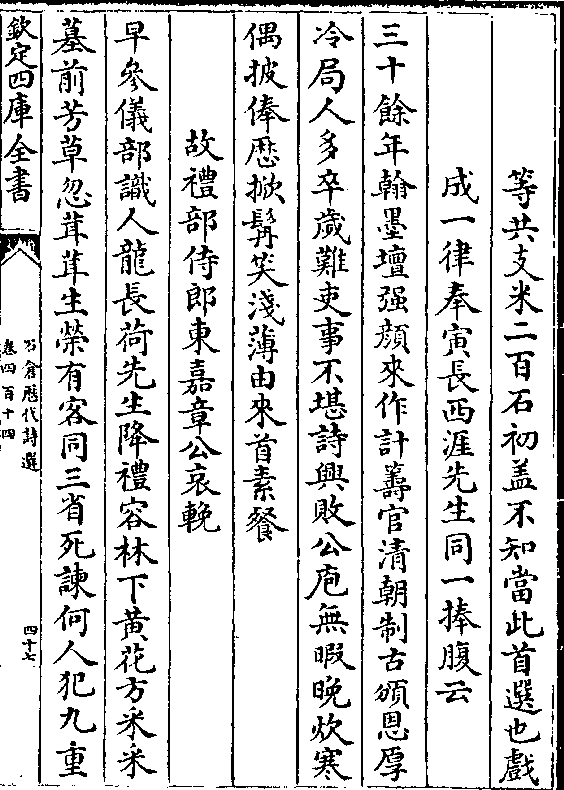 等共支米二百石初盖不知當此首選也戲
成一律奉寅長西涯先生同一捧腹云
三十餘年翰墨壇强顔來作計籌官清朝制古頒恩厚
冷局人多卒歲難吏事不堪詩興敗公庖無暇晚炊寒
偶披俸厯掀髯笑淺薄由來首素餐
故禮部侍郎東嘉章公哀輓
早叅儀部識人龍長荷先生降禮容林下黄花方采采
墓前芳草忽茸茸生榮有客同三省死諫何人犯九重
欽定四庫全書
石倉歷代詩選
卷四百十四
四十七